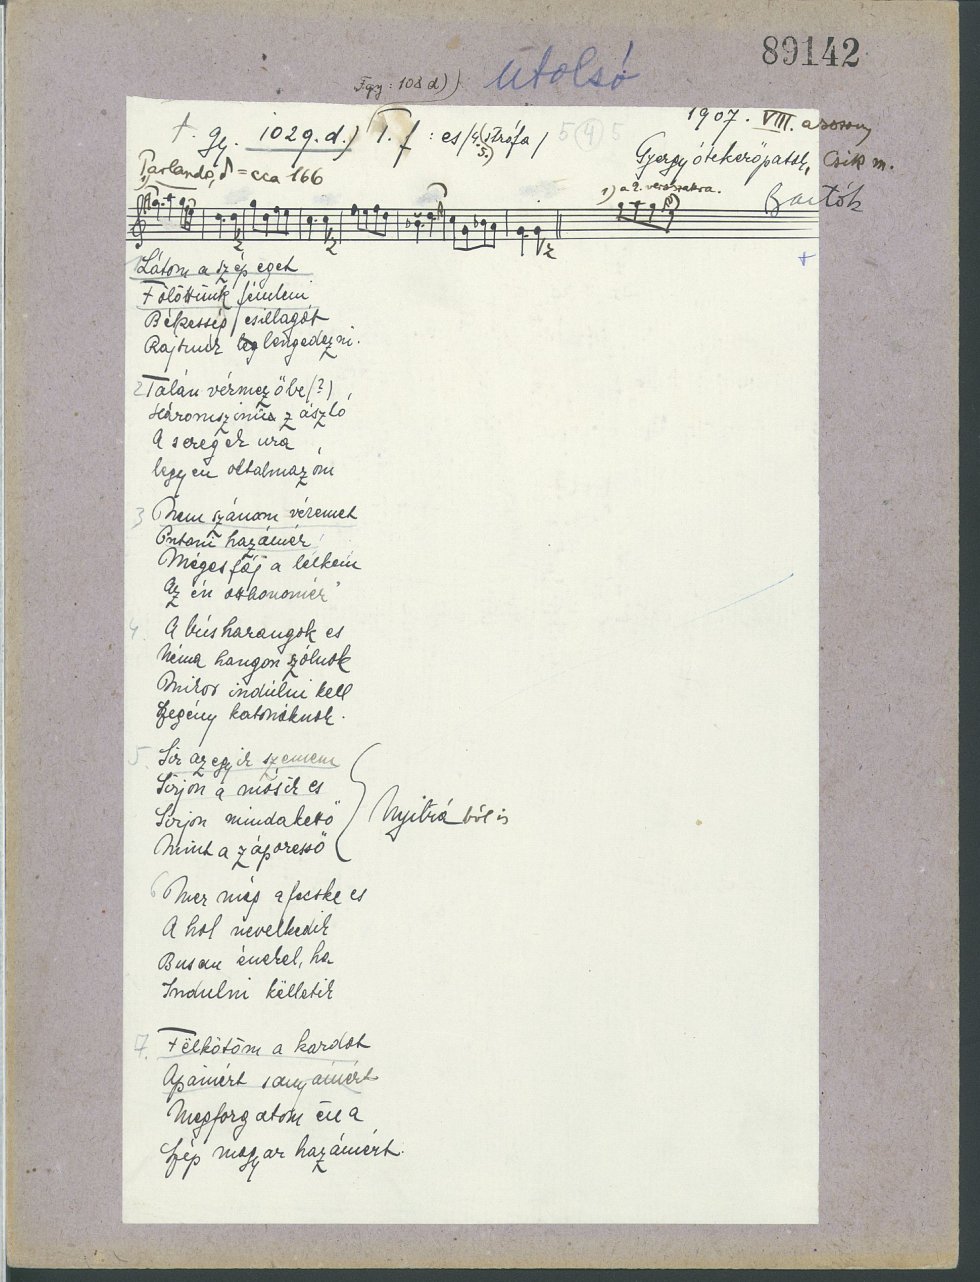 89142
Fgy: 108 d)
utolsó
+. gy. 1029.d.) T. f: es/4. (strófa/ 5 4 5
5.)
1907. VIII. asszony
Gyergyótekerőpatak, Csík m.
Bartók
Parlando, ♪ = cca 166
1)
1) a 2. versszakra.
+
1 Látom a szép eget
Fölöttünk fényleni
Békesség csillagát
Rajtunk leng lengedezni.
2 Talán vérmezőbe (?)
Háromszinü zászló
A seregek ura
legyen oltalmazóm
3 Nem szánom véremet
Ontani hazámér
Mégis fáj a lelkem
Az én otthonomér
4. A bús harangok es
Néma hangon szólnak
Mikor indulni kell
Szegény katonáknak.
5. Sir az egyik szemem
Sirjon a másik es
Sirjon mindakettő
Mint a záporeső
Nyitrá ból is
6 Mer még a fecske es
A hol nevelkedik
Busan énekel, ha
Indulni këlletik
7. Fëlkötöm a kardot
Apámért s anyámért
Megforgatom én a
Szép magyar hazámért.